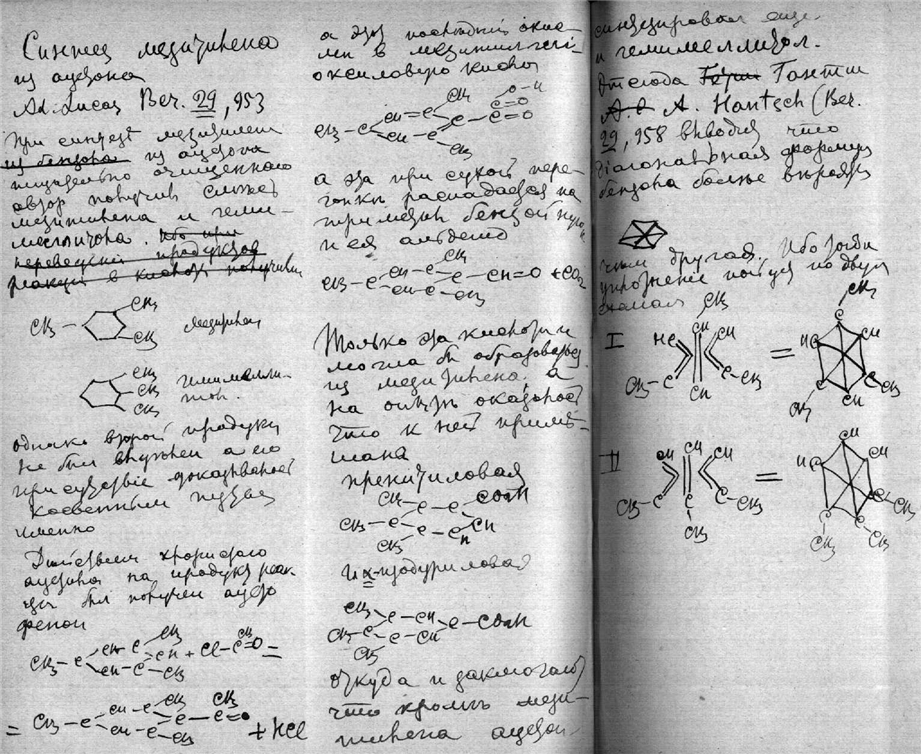 Синтез мезитилена
из ацетона
Ad. Lucas Ber. 29, 953
При синтезе мезитилена
из бензона из ацетона
тщательно очищенного
автор получил смесь
мезитилена и геми-
меллитола.
переведении продуктов
реакции в кислоты получили
CH3 CH3 CH3 мезитилен
CH3 CH3 CH3 гемимелли-
тол.
однако второй продукт
не был выделен а его
присутствие доказывают
косвенным путем
именно
Действием хлористого
ацетила на продукт реак-
ции был получен ацето
фенон
CH3 – C CH – C CH3 CH + Cl – C CH3 = O =
CH – C CH3
= CH3 – C CH – C CH3 C – C CH3 = O + HCl
CH – C CH3
а этот последний окис-
лен в мезитилгли-
оксиловую кислоту
CH3 – C CH = C CH3 C – C = O O – H
CH – C CH3 C = O
а эта при сухой пере-
гонке распадается на
триметил бензойную
и ея альдегид
CH3 – C CH – C CH3 C – CH = O + CO2
CH – C CH3
Только эта кислота и
могла бы образоваться
из мезитилена, а
на опыте оказалось
что к ней приме-
шана
пренитиловая
CH3 C – C COOH
CH3 – C CH
CH3 C – C H
и α-изодуриловая
CH3 C – CH
CH3 – C C – COOH
CH3 C – CH
откуда и заключают
что кромѣ мези-
тилена ацетон
синтезирован еще
и гемимеллитол.
Отсюда Гантш
A. Hantsch (Ber.
29, 958 выводит что
диагональная формула
бензола более вероятна
чем другая, ибо тогда
уплотнение пойдут по двум
схемам
I CH3 CH HC CH CH3 – C C – CH3 CH = CH3 C HC CH C C – CH3 CH3 CH
II CH CH CH CH3 – C C – CH3 C CH3 = CH HC CH C C – CH3 CH3 C CH3